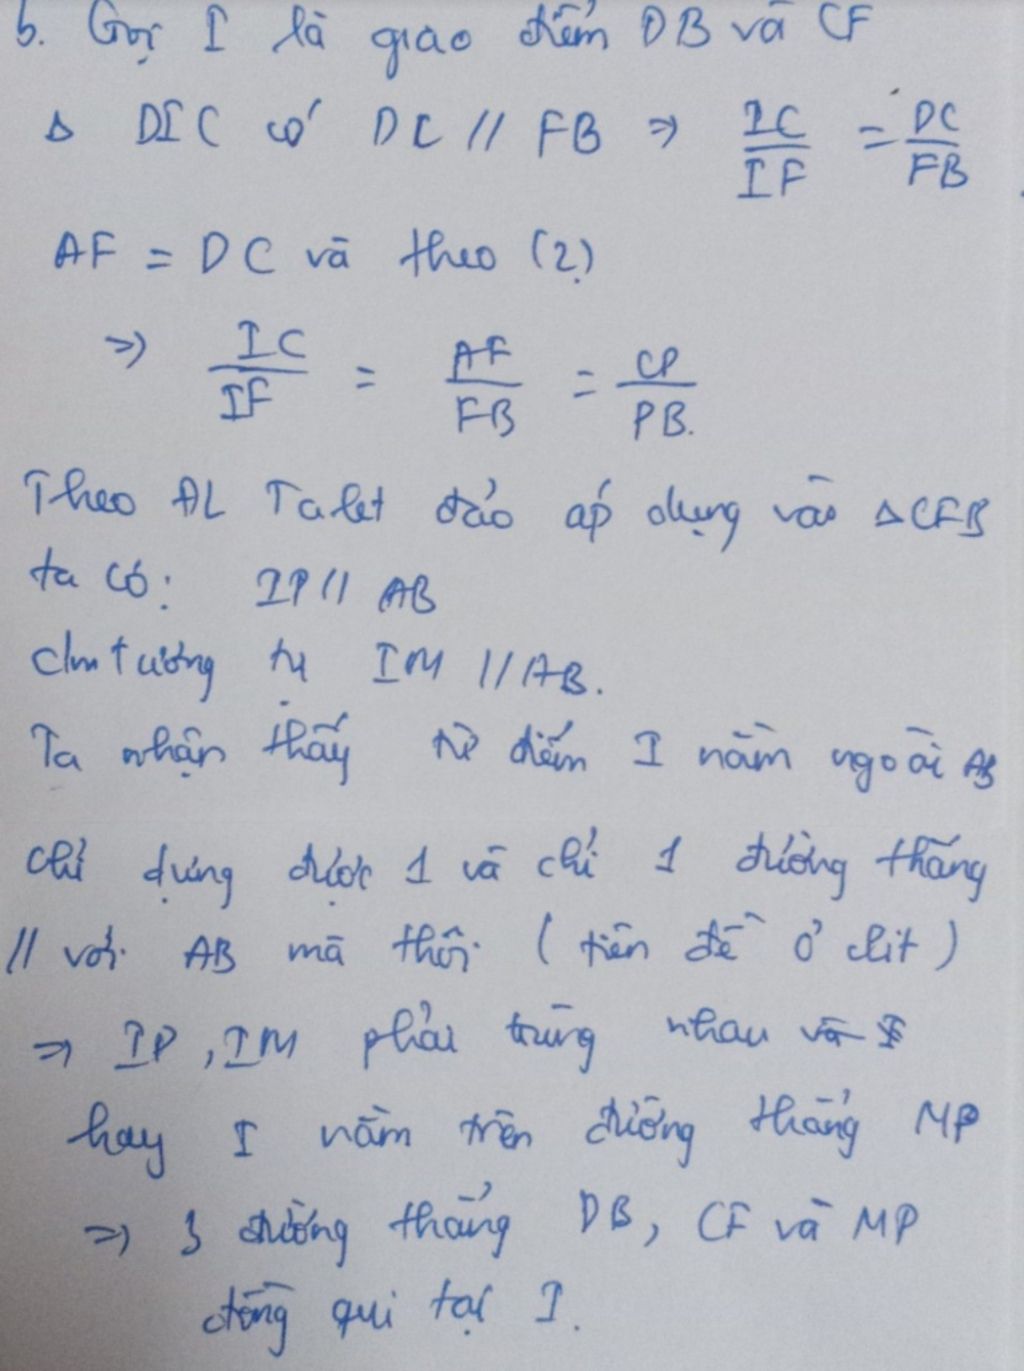 b. Gọi I là giao điểm DB và CF
Δ DIC có DC // FB => IC/IF = DC/FB
AF = DC và theo (2)
=> IC/IF = AF/FB = CP/PB.
Theo ĐL Talet đảo áp dụng vào ΔCFB
ta có: IP // AB
cm tương tự IM // AB.
Ta nhận thấy từ điểm I nằm ngoài AB
chỉ dựng được 1 và chỉ 1 đường thẳng
// với AB mà thôi. (tiên đề Ơ clit)
=> IP, IM phải trùng nhau
hay I nằm trên đường thẳng MP
=> 3 đường thẳng DB, CF và MP
đồng qui tại I.